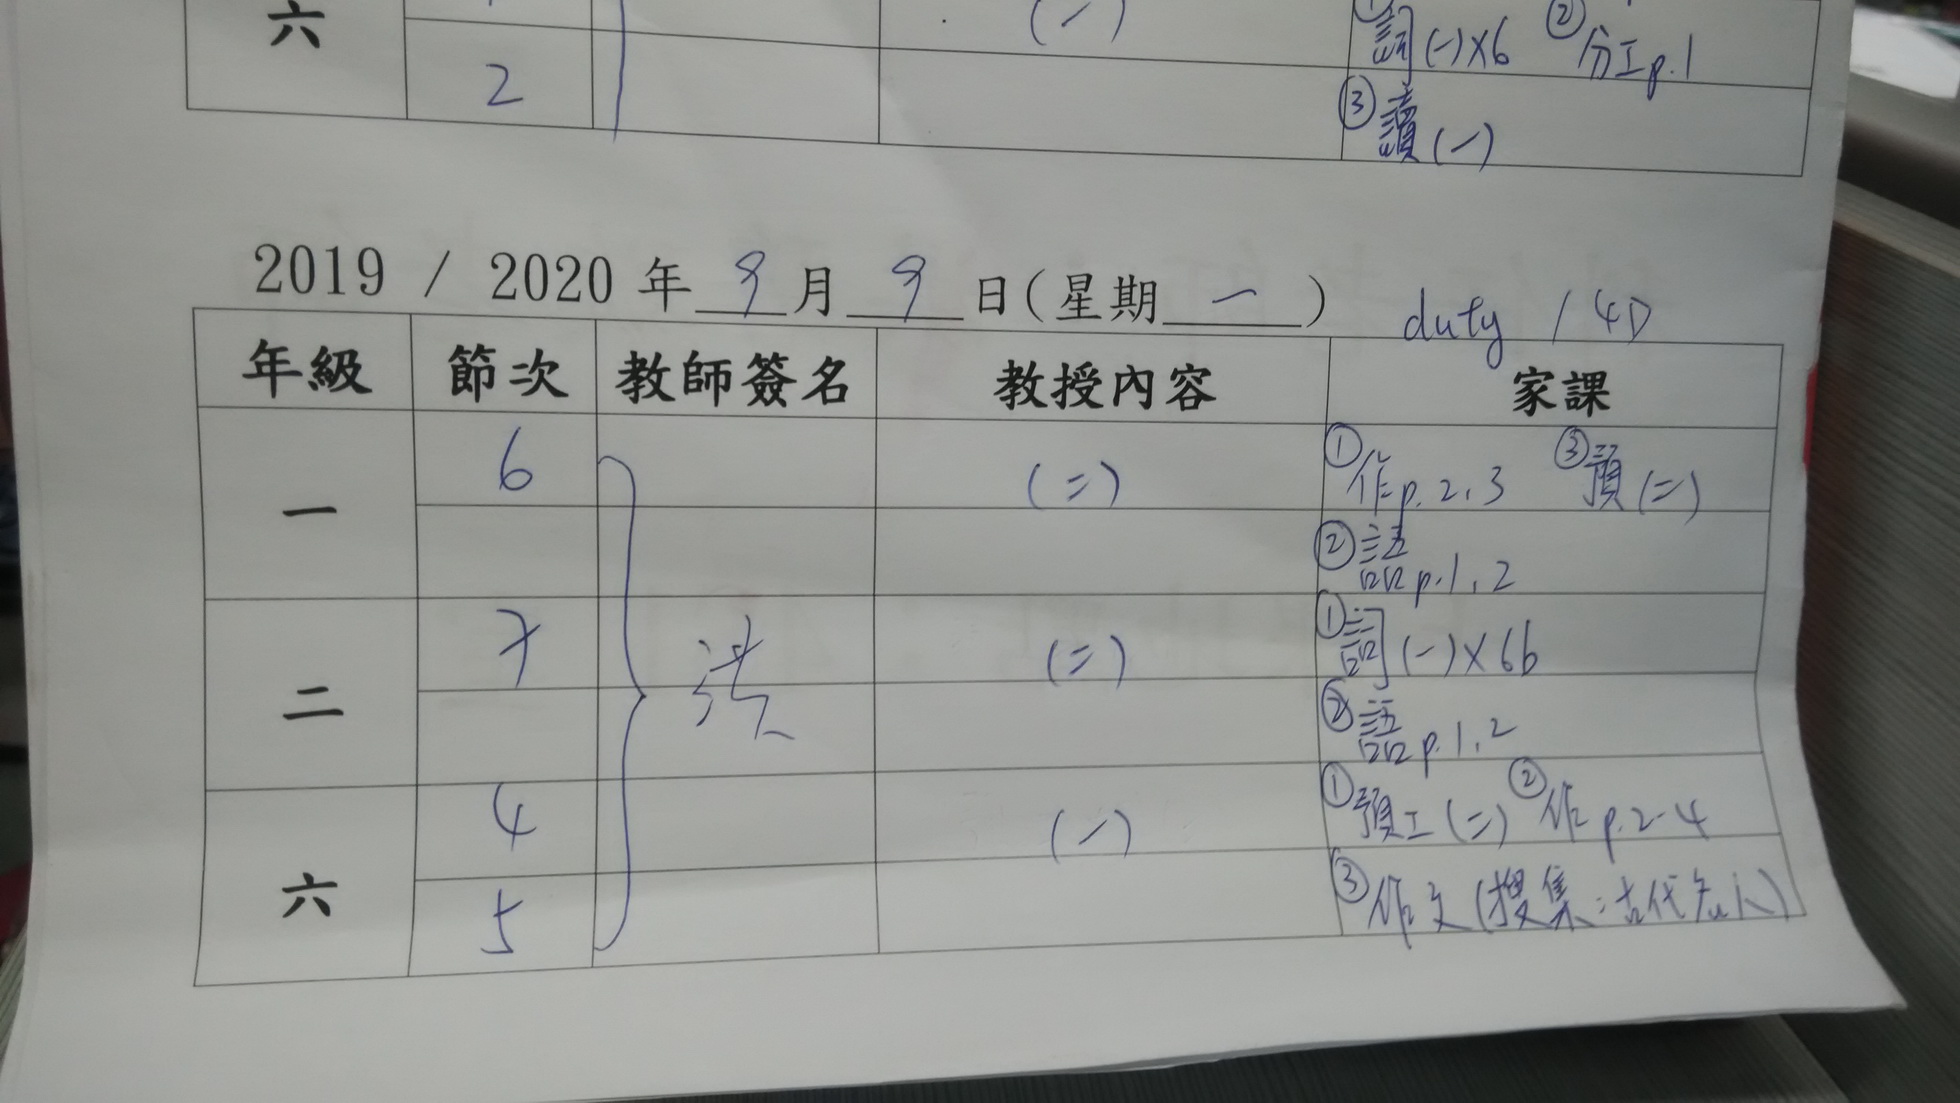 六
(一)
① 詞(一)x6 ② 分工p.1
2
③ 讀(一)
2019 / 2020 年 9 月 9 日(星期 一 )
duty / 4D
年級 節次 教師簽名 教授內容 家課
一 6 (二) ① 作p.2,3 ③ 預(二)
② 語p.1,2
二 7 (二) ① 詞(一)x6b
② 語p.1,2
六 4 (一) ① 預工(二) ② 作p.2-4
5 ③ 作文(搜集:古代名人)